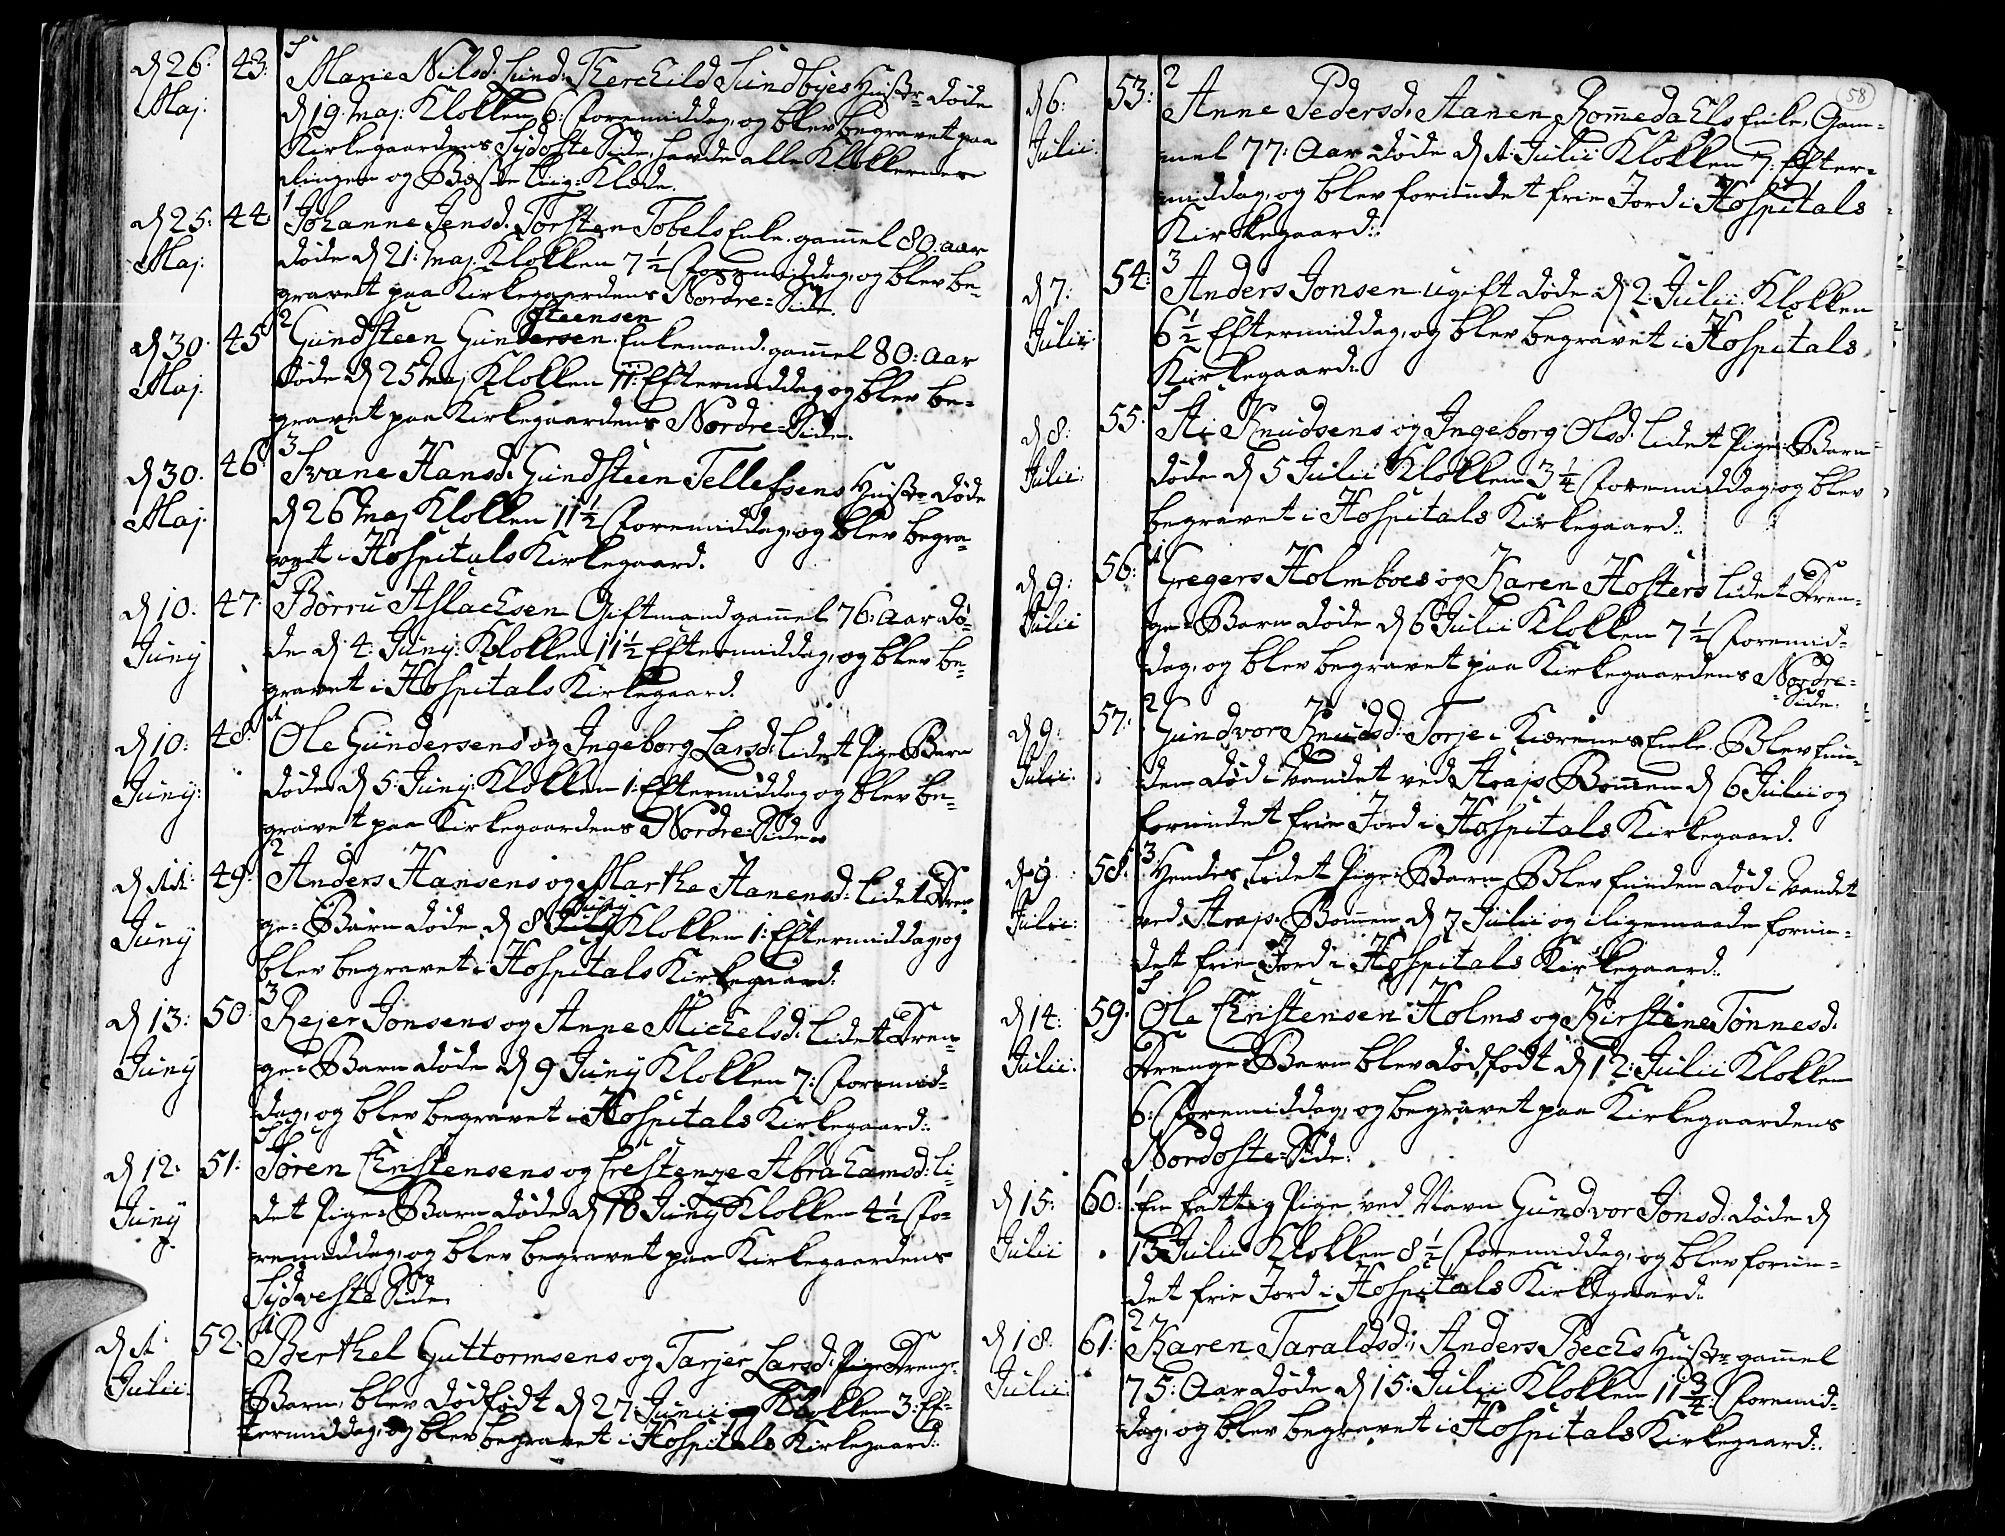 d 26: 43: 5
Marie Nilsd: Lund: Therchild Lundbyes Hustr: døde
Maj: d 19 Maj: Klokken 6: Formiddag, og blev begravet paa
Kirkegaardens Sydoste Side, havde alle Klokkernes
Ringen og Beste Liig: Klæde.
d 25: 44 1
Johanne Jensd: Torsten Tobels Enke. gammel 80: aar
Maj: døde d 21: Maj: Klokken 7 1/2 Formiddag, og blev be-
gravet paa Kirkegaardens Nordre-Side.
d 30. 45 2 steensen
Gundsteen Gundersen. Enkemand. gammel 80: Aar
Maj: døde d 25 Maj Klokken 11: Eftermiddag og blev be-
gravet paa Kirkegaardens Nordre-Side.
d 30. 46 3
Svane Hansd: Gundsteen Tellefsens Hustr: døde
Maj: d 26 Maj Klokken 11 1/2 Formiddag, og blev begra-
vet i Hospitals Kirkegaard.
d 10: 47: 5
Børru Aslachsen Giftmand gammel 76: Aar dø-
Juny de d 4: Juny: Klokken 11 1/2 Eftermiddag, og blev be-
gravet i Hospitals Kirkegaard.
d 10: 48: 1
Ole Gundersens og Ingeborg Larsd: lidet Pige Barn
Juny: døde d 5: Juny: Klokken 1: Eftermiddag og blev be-
gravet paa Kirkegaardens Nordre-Side
d 11: 49: 2
Anders Hansens og Marthe Aanensd: lidet Dren-
Juny ge-Barn døde d 8 Juny Klokken 1: Eftermiddag, og
blev begravet i Hospitals Kirkegaard:
d 13: 50: 3
Rejer Jonsens og Anne Michelsd: lidet Dren-
Juny ge-Barn døde d 9 Juny Klokken 7: Formid-
dag, og blev begravet i Hospitals Kirkegaard:
d 12: 51: 5
Søren Christensens og Crestenze Abrahamsd: li-
Juny det Pige-Barn døde d 10 Juny Klokken 4 1/2 Fo-
remiddag, og blev begravet paa Kirkegaardens
Sydveste Side.
d 1: 52: 1
Berthel Guttormsens og Tarjer Larsd: Drenge-
Julii: Barn, blev dødfødt d 27: Junii Klokken 3: Ef-
termiddag, og blev begravet i Hospitals Kirkegaard:
58
d 6: 53: 2
Anne Pedersd: Aanen Rommedahls Enke, Gam-
Julii: mel 77: Aar døde d 1: Julii Klokken 7: Efter-
middag, og blev forundet frie Jord i Hospitals
Kirkegaard:
d 7: 54: 3
Anders Jonsen ugift døde d 2: Julii Klokken
Julii: 6 1/2 Eftermiddag, og blev begravet i Hospitals
Kirkegaard:
d 8: 55: 5
Ai Knudsens og Ingeborg Olsd: lidet Pige-Barn
Julii: døde d 5 Julii Klokken 3 1/4 Formiddag, og blev
begravet i Hospitals Kirkegaard:
d 9: 56: 1
Gregers Holmboes og Karen Hosters lidet Dren-
Julii ge-Barn døde d 6 Julii Klokken 7 1/2 Formid-
dag, og blev begravet paa Kirkegaardens Nordre-
Side.
d 9: 57: 2
Gundvor Knudsd: Torje i Kiærenes Enke. Blev fun-
Julii: den død i Vandet ved Bommen d 6 Julii og
forundet frie Jord i Hospitals Kirkegaard.
d 9 58: 3
Hendes lidet Pige-Barn Blev funden død i Vandet
Julii: ved Bommen d 7 Julii og iligemaade forun-
det frie Jord i Hospitals Kirkegaard:
d 14: 59: 5
Ole Christensen Holms og Kirstine Tønnesd:
Julii: Drenge-Barn blev dødfødt d 12: Julii Klokken
6: Formiddag, og begravet paa Kirkegaardens
Nordoste-Side:
d 15: 60: 1
En fattig Pige ved Navn Gundvor Jonsd: døde d
Julii 13 Julii Klokken 8 1/2 Formiddag, og blev forun-
det frie Jord i Hospitals Kirkegaard:
d 18. 61: 2
Karen Taraldsd: Anders Bechs Hustr: gammel
Julii: 75: Aar døde d 15: Julii Klokken 11 3/4: Formid-
dag, og blev begravet i Hospitals Kirkegaard: